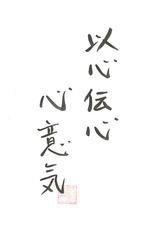 以心伝心
心意気